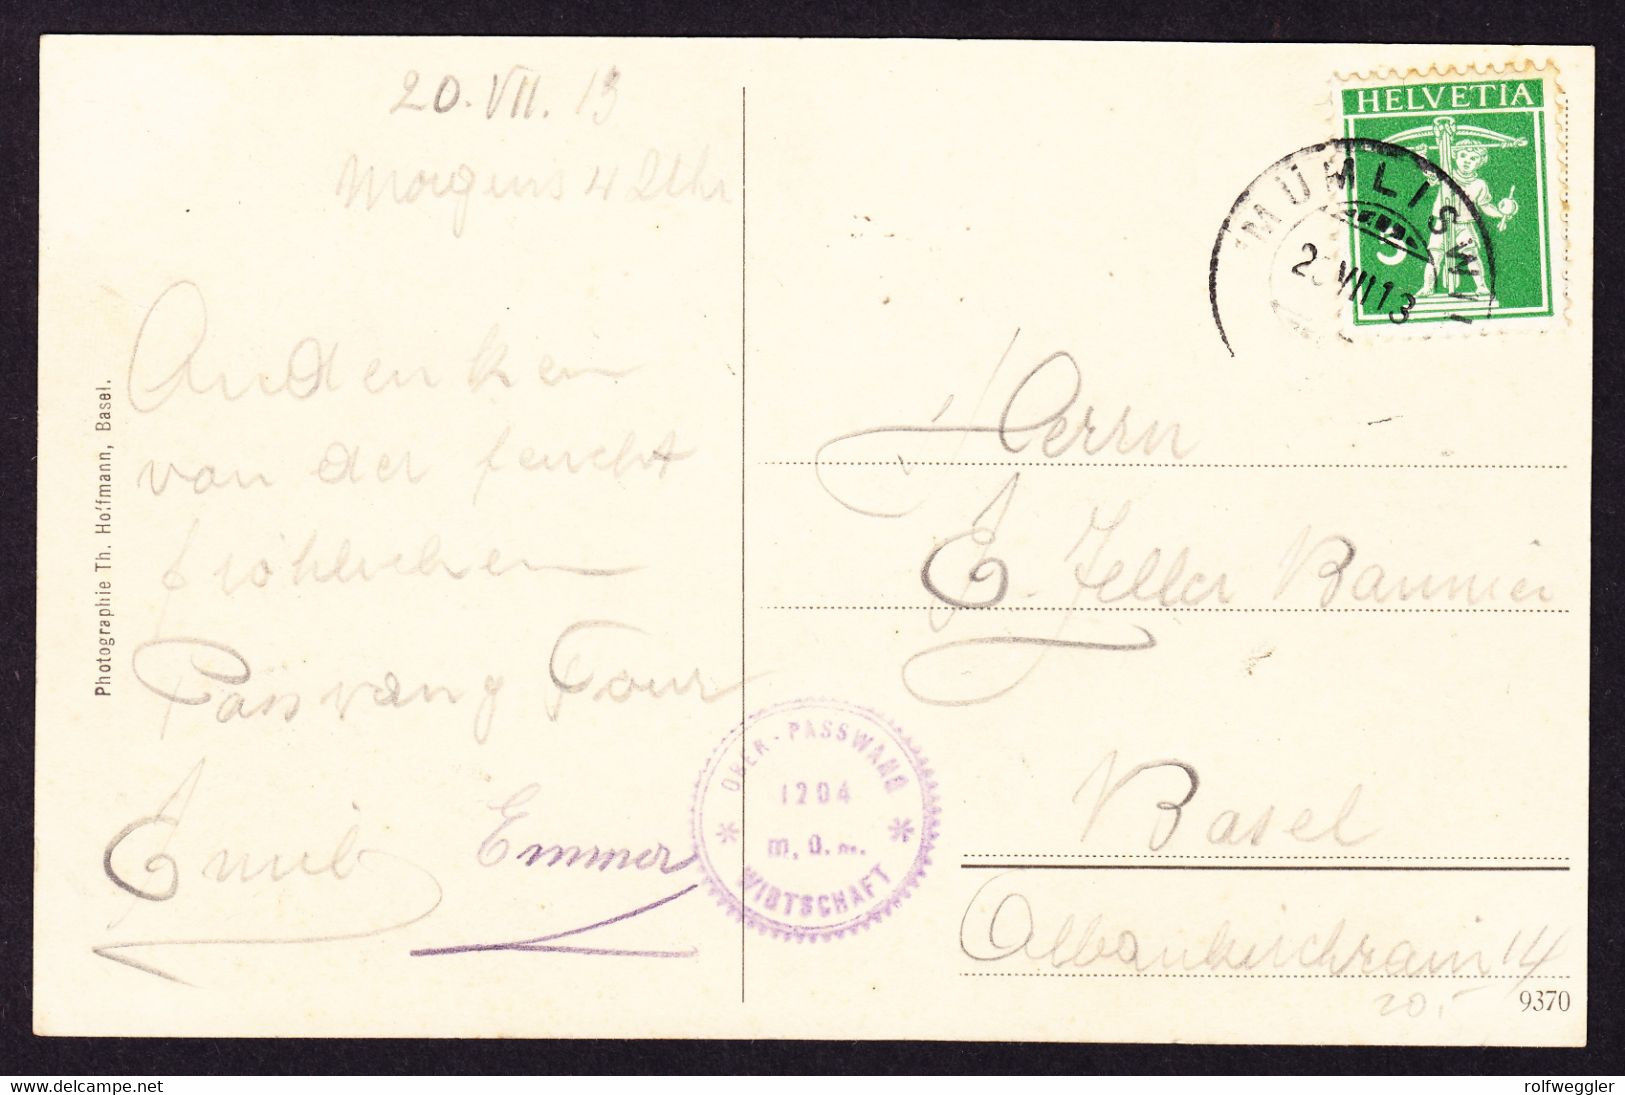 20. VII. 13
Morgens 4 Uhr
Andenken
von der feucht
fröhlichen
Passwang Tour
Emil Emmer
Photographie Th. Hoffmann, Basel.
HELVETIA
5
MÜMLISWIL
VII 13
Herrn
E. Zeller
Basel
Albankirchrain 14
OBER-PASSWANG
1204
m.ü.m.
WIRTSCHAFT
20.-
9370
delcampe.net
rolfweggler